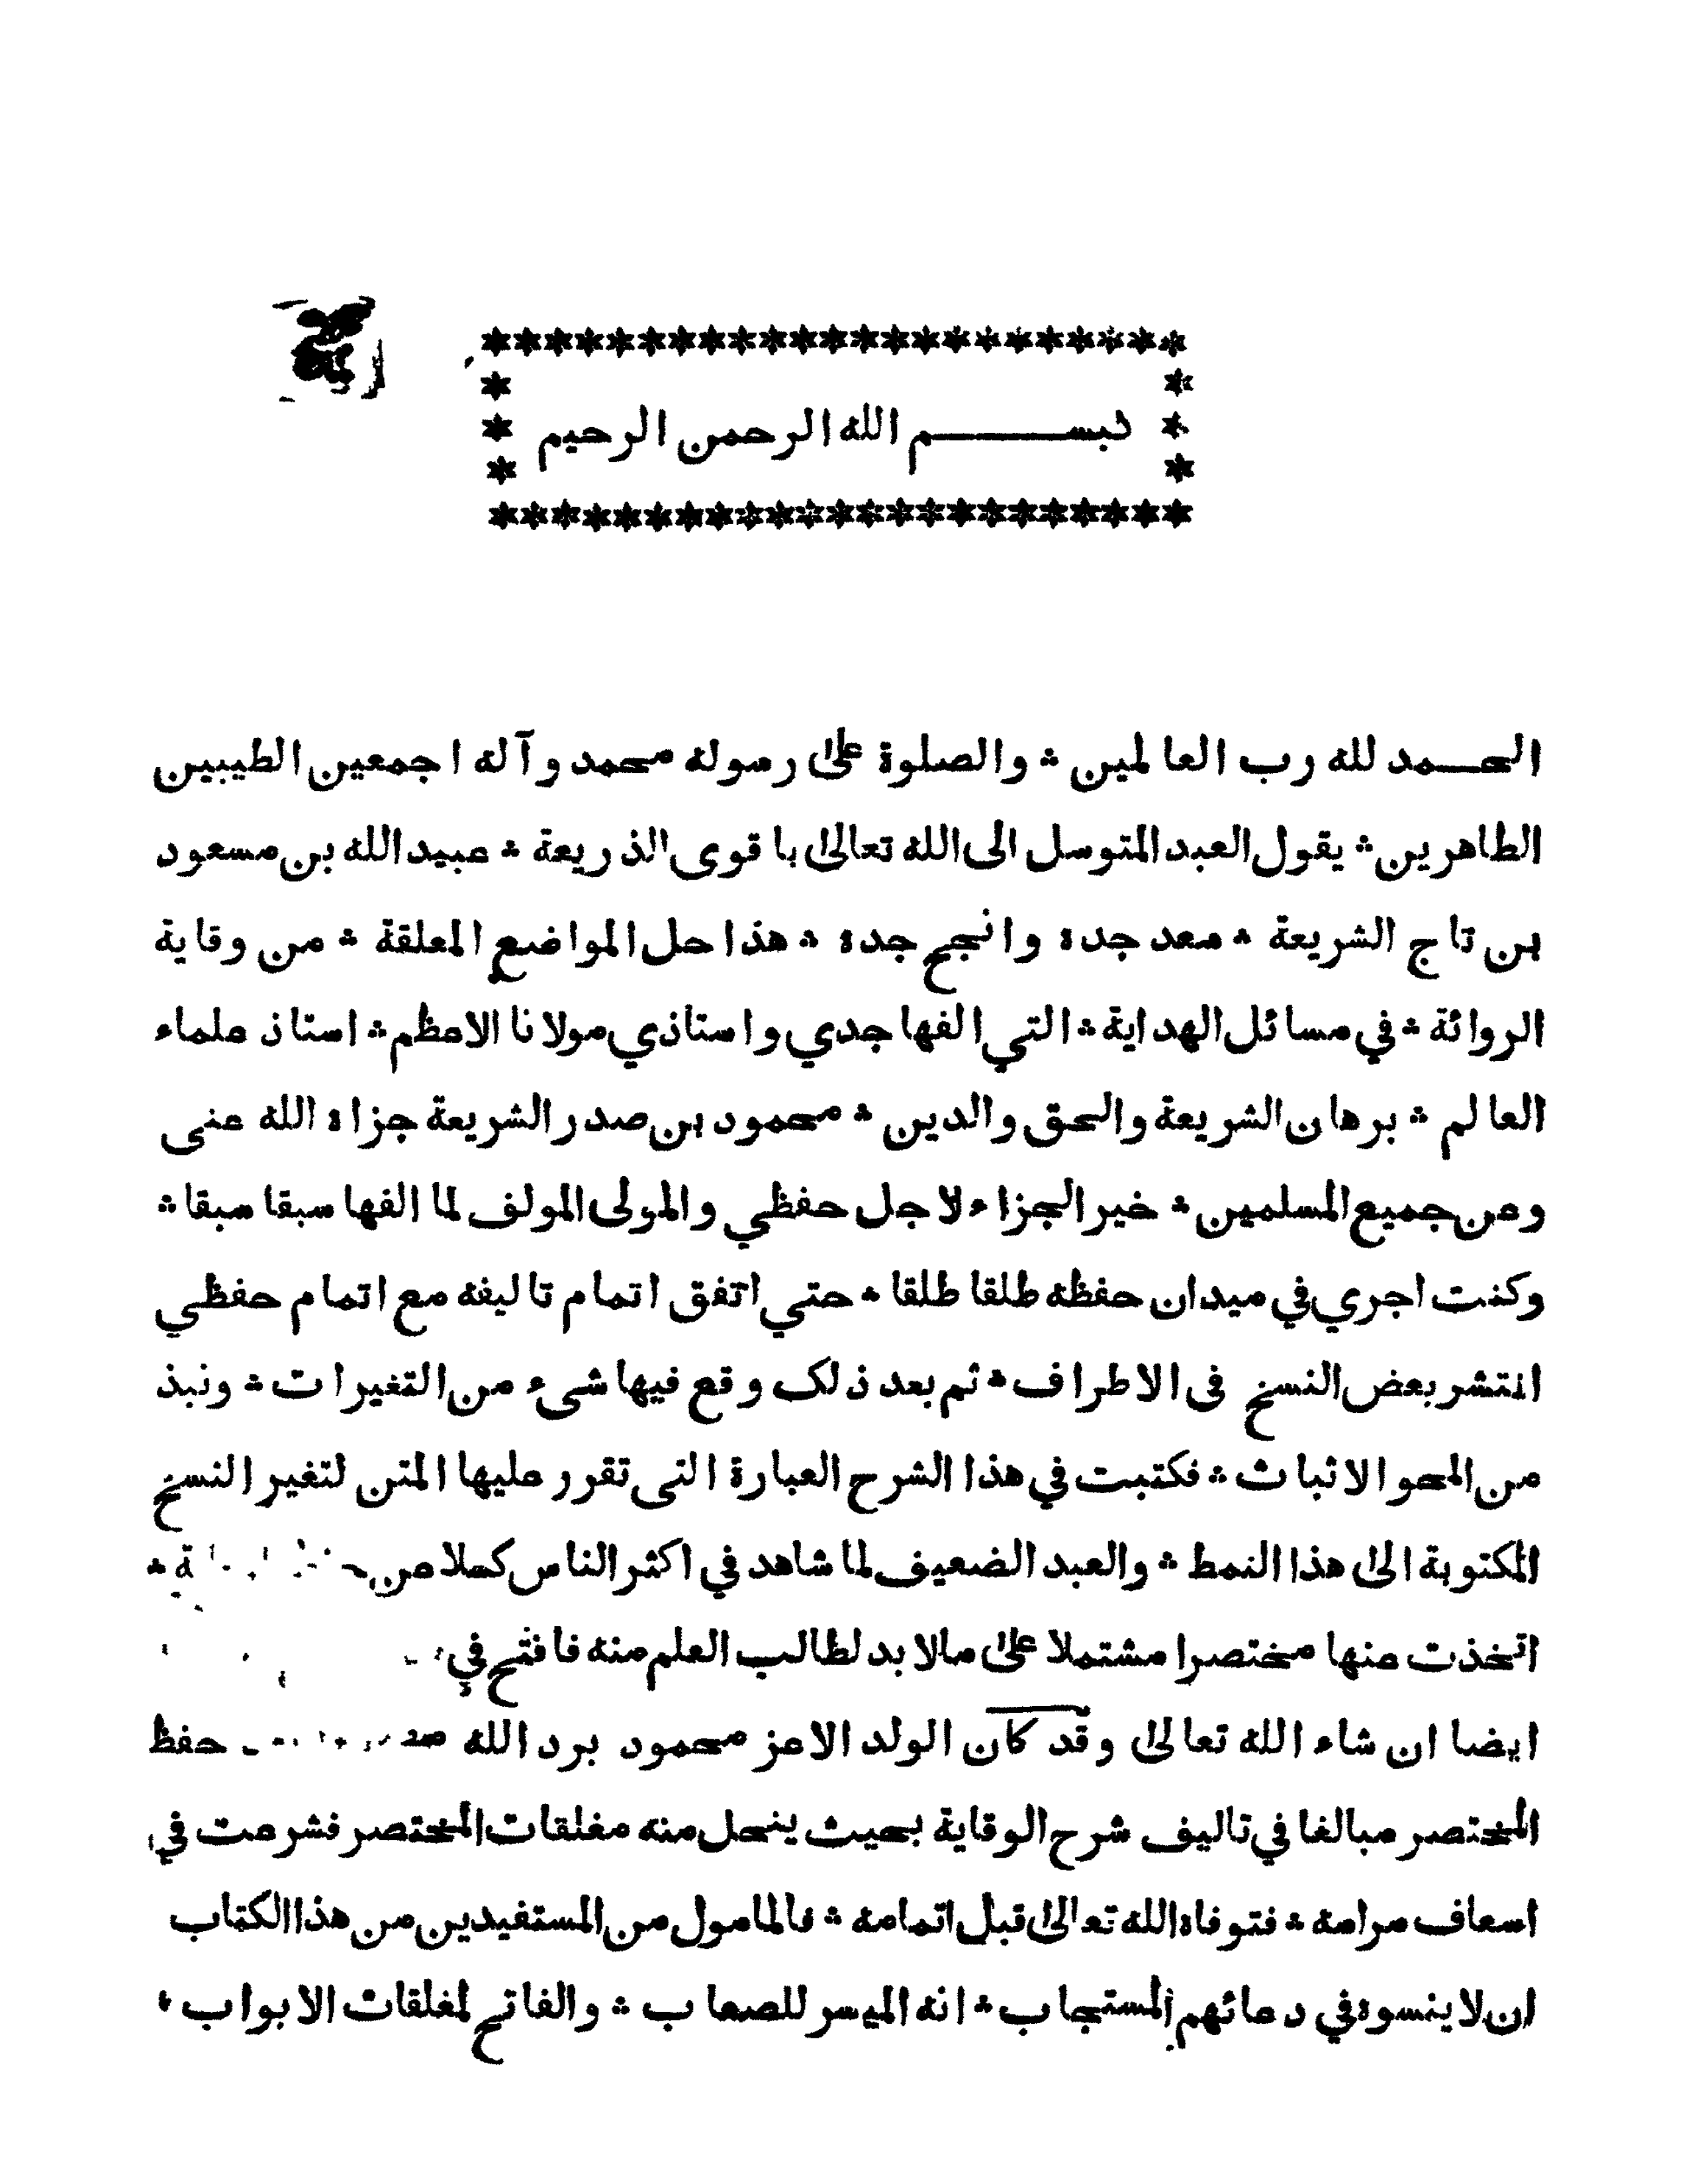 بســـــــم الله الرحمن الرحيم
الحـــمد لله رب العالمين ⁂ والصلوة على رسوله محمد وآله اجمعين الطيبين
الطاهرين ⁂ يقول العبد المتوسل الى الله تعالى باقوى الذريعة ⁂ عبيد الله بن مسعود
بن تاج الشريعة ⁂ سعد جده وانجح جده ⁂ هذا حل المواضع المعلقة ⁂ من وقاية
الروائة ⁂ في مسائل الهداية ⁂ التي الفها جدي واستاذي مولانا الاعظم ⁂ استاذ علماء
العالم ⁂ برهان الشريعة والحق والدين ⁂ محمود بن صدر الشريعة جزاه الله عنى
وعن جميع المسلمين ⁂ خير الجزاء لاجل حفظي والمولى المولف لما الفها سبقا سبقا ⁂
وكنت اجري في ميدان حفظه طلقا طلقا ⁂ حتي اتفق اتمام تاليفه مع اتمام حفظي
انتشر بعض النسخ فى الاطراف ⁂ ثم بعد ذلك وقع فيها شىء من التغيرات ⁂ ونبذ
من المحو الاثبات ⁂ فكتبت في هذا الشرح العبارة التى تقرر عليها المتن لتغير النسخ
المكتوبة الى هذا النمط ⁂ والعبد الضعيف لما شاهد في اكثر الناس كسلا عن
اتخذت عنها مختصرا مشتملا على مالابد لطالب العلم منه فافتح في
ايضا ان شاء الله تعالى وقد كان الولد الاعز محمود برد الله حفظ
المختصر مبالغا في تاليف شرح الوقاية بحيث ينحل منه مغلقات المختصر فشرعت في
اسعاف مرامه ⁂ فتوفاه الله تعالى قبل اتمامه ⁂ فالمامول من المستفيدين من هذا الكتاب
ان لا ينسوه في دعائهم المستجاب ⁂ انه الميسر للصعاب ⁂ والفاتح لمغلقات الابواب